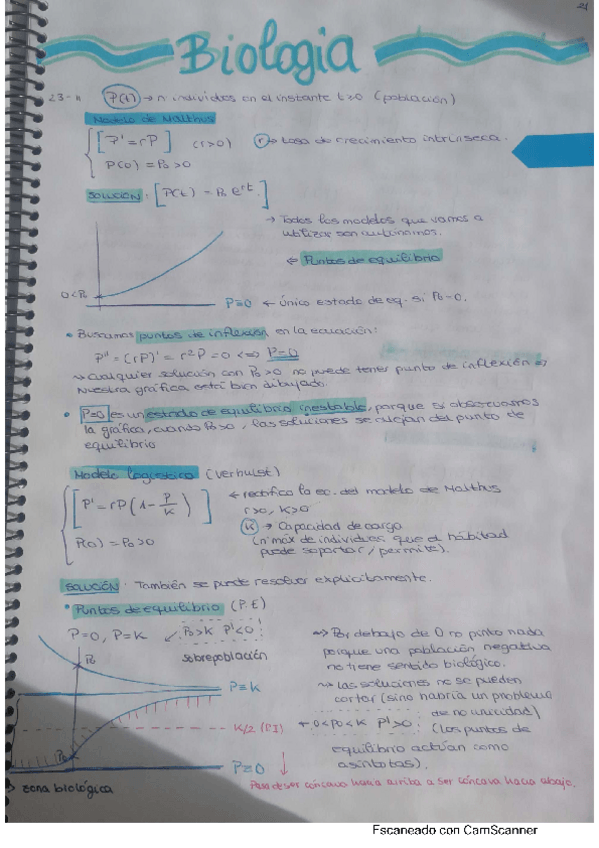 21
Biologia
23-11 P(t) → nº individuos en el instante t≥0 (población)
Modelo de Malthus
P' = rP (r>0) r → tasa de crecimiento intrínseca.
P(0) = P₀ > 0
SOLUCIÓN: P(t) = P₀ e^rt.
→ Todos los modelos que vamos a
utilizar son autónomos.
← Puntos de equilibrio
0<P₀
P≡0 ← único estado de eq. si P₀=0.
• Buscamos puntos de inflexión en la ecuación:
P'' = (rP)' = r²P = 0 <=> P=0
→ Cualquier solución con P₀>0 no puede tener punto de inflexión ⇒
Nuestra gráfica está bien dibujada.
• P=0 es un estado de equilibrio inestable, porque si observamos
la gráfica, cuando P₀>0, las soluciones se alejan del punto de
equilibrio
Modelo logístico (Verhulst)
P' = rP(1 - P/K) ← rectifica la ec. del modelo de Malthus
r>0, K>0
K → Capacidad de carga
P(0) = P₀ > 0 (nº máx de individuos que el hábitad
puede soportar / permite).
SOLUCIÓN: También se puede resolver explícitamente.
• Puntos de equilibrio (P.E)
P=0, P=K ↙ P₀>K P'<0
sobrepoblación
P₀
P≡K
K/2 (P.I)
P₀
P≡0
zona biológica
→ Por debajo de 0 no pinto nada
porque una población negativa
no tiene sentido biológico.
→ Las soluciones no se pueden
cortar (sino habría un problema
de no unicidad)
← 0<P₀<K P'>0 (los puntos de
equilibrio actúan como
asíntotas).
Pasa de ser cóncava hacia arriba a ser cóncava hacia abajo.
Escaneado con CamScanner